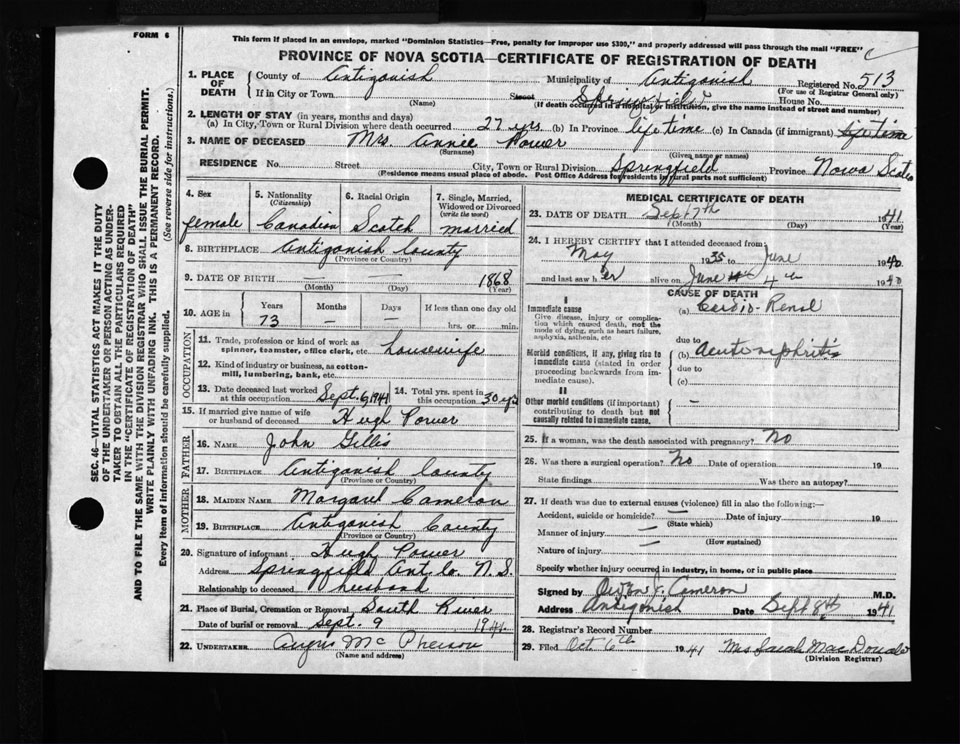 FORM 6
This form if placed in an envelope, marked "Dominion Statistics—Free, penalty for improper use $300," and properly addressed will pass through the mail "FREE"
PROVINCE OF NOVA SCOTIA—CERTIFICATE OF REGISTRATION OF DEATH
SEC. 46—VITAL STATISTICS ACT MAKES IT THE DUTY
OF THE UNDERTAKER OR PERSON ACTING AS UNDER-
TAKER TO OBTAIN ALL THE PARTICULARS REQUIRED
IN THE "CERTIFICATE OF REGISTRATION OF DEATH"
AND TO FILE THE SAME WITH THE DIVISION REGISTRAR WHO SHALL ISSUE THE BURIAL PERMIT.
WRITE PLAINLY WITH UNFADING INK. THIS IS A PERMANENT RECORD.
Every item of information should be carefully supplied. (See reverse side for instructions.)
1. PLACE OF DEATH
County of Antigonish Municipality of Antigonish Registered No. 513
(For use of Registrar General only)
If in City or Town Street Springfield House No.
(Name) (If death occurred in a hospital or institution, give the name instead of street and number)
2. LENGTH OF STAY (in years, months and days)
(a) In City, Town or Rural Division where death occurred 27 yrs. (b) In Province life time (c) In Canada (if immigrant) life time
3. NAME OF DECEASED Mrs. Annie Power
(Surname) (Given name or names)
RESIDENCE No. Street City, Town or Rural Division Springfield Province Nowa Scotia
(Residence means usual place of abode. Post Office Address for residents in rural parts not sufficient)
4. Sex female
5. Nationality (Citizenship) Canadian
6. Racial Origin Scotch
7. Single, Married, Widowed or Divorced (write the word) married
8. BIRTHPLACE Antigonish County
(Province or Country)
9. DATE OF BIRTH — — 1868
(Month) (Day) (Year)
10. AGE in Years 73 Months — Days — If less than one day old hrs. or min.
OCCUPATION
11. Trade, profession or kind of work as spinner, teamster, office clerk, etc. housewife
12. Kind of industry or business, as cotton-mill, lumbering, bank, etc.
13. Date deceased last worked at this occupation Sept. 6, 1941
14. Total yrs. spent in this occupation 30 yrs
15. If married give name of wife or husband of deceased Hugh Power
FATHER
16. NAME John Gillis
17. BIRTHPLACE Antigonish County
(Province or Country)
MOTHER
18. MAIDEN NAME Margaret Cameron
19. BIRTHPLACE Antigonish County
(Province or Country)
20. Signature of informant Hugh Power
Address Springfield Ant. Co. N.S.
Relationship to deceased husband
21. Place of Burial, Cremation or Removal South River
Date of burial or removal Sept. 9 1941.
22. UNDERTAKER Angus McPherson
(Name and address)
MEDICAL CERTIFICATE OF DEATH
23. DATE OF DEATH Sept 7th 1941
(Month) (Day) (Year)
24. I HEREBY CERTIFY that I attended deceased from:
May 1935 to June 1940
and last saw h er alive on June 4th 1940
CAUSE OF DEATH
I
Immediate cause
Give disease, injury or complication which caused death, not the mode of dying, such as heart failure, asphyxia, asthenia, etc
(a) Cardio-Renal
due to
Morbid conditions, if any, giving rise to immediate cause (stated in order proceeding backwards from immediate cause).
(b) Acute nephritis
due to
(c)
II
Other morbid conditions (if important) contributing to death but not causally related to immediate cause.
—
25. If a woman, was the death associated with pregnancy? No
26. Was there a surgical operation? No Date of operation 19
State findings Was there an autopsy?
27. If death was due to external causes (violence) fill in also the following:—
Accident, suicide or homicide? — Date of injury 19
(State which)
Manner of injury —
(How sustained)
Nature of injury —
Specify whether injury occurred in industry, in home, or in public place
Signed by J. Cameron M.D.
Address Antigonish Date Sept 8th 1941
28. Registrar's Record Number
29. Filed Oct 6th 1941 Mrs Sarah MacDonald
(Division Registrar)